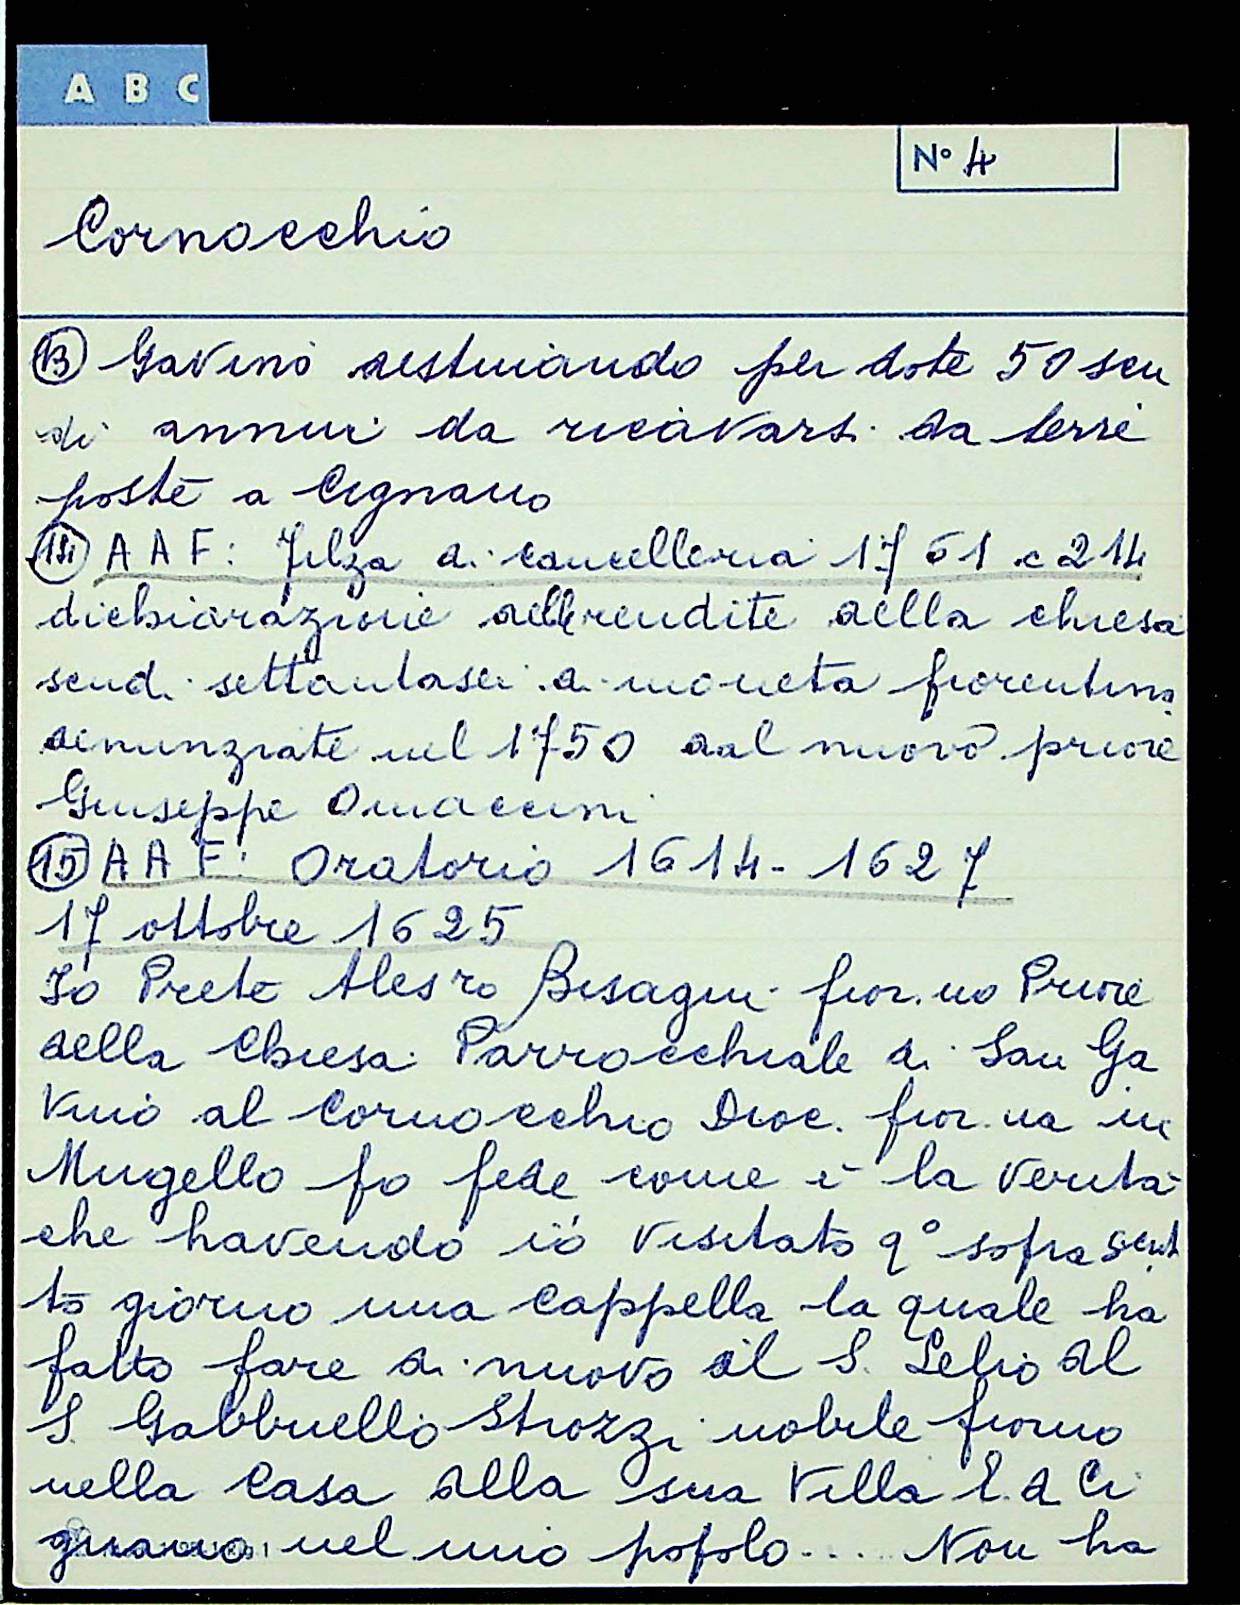 A B C
N° 4
Cornocchio
13 Gavino destinando per dote 50 scu
di annui da ricavarsi da terre
poste a Cignano
14 A A F: Filza di cancelleria 1761 c 214
dichiarazione delle rendite della chiesa
scudi settantasei di moneta fiorentina
denunziate nel 1750 dal nuovo priore
Giuseppe Omaccini
15 A A F: Oratorio 1614-1627
17 ottobre 1625
Io Prete Aless.ro Bisagni fior.no Priore
della Chiesa Parrocchiale di San Ga
vino al Cornocchio Dioc. fior.na in
Mugello fo fede come è la verità
che havendo io visitato q° soprascrit
to giorno una cappella la quale ha
fatto fare di nuovo il S. Lelio del
S. Gabbriello Strozzi nobile fior.no
nella Casa della sua Villa di Ci
gnano nel mio popolo.... Non ha